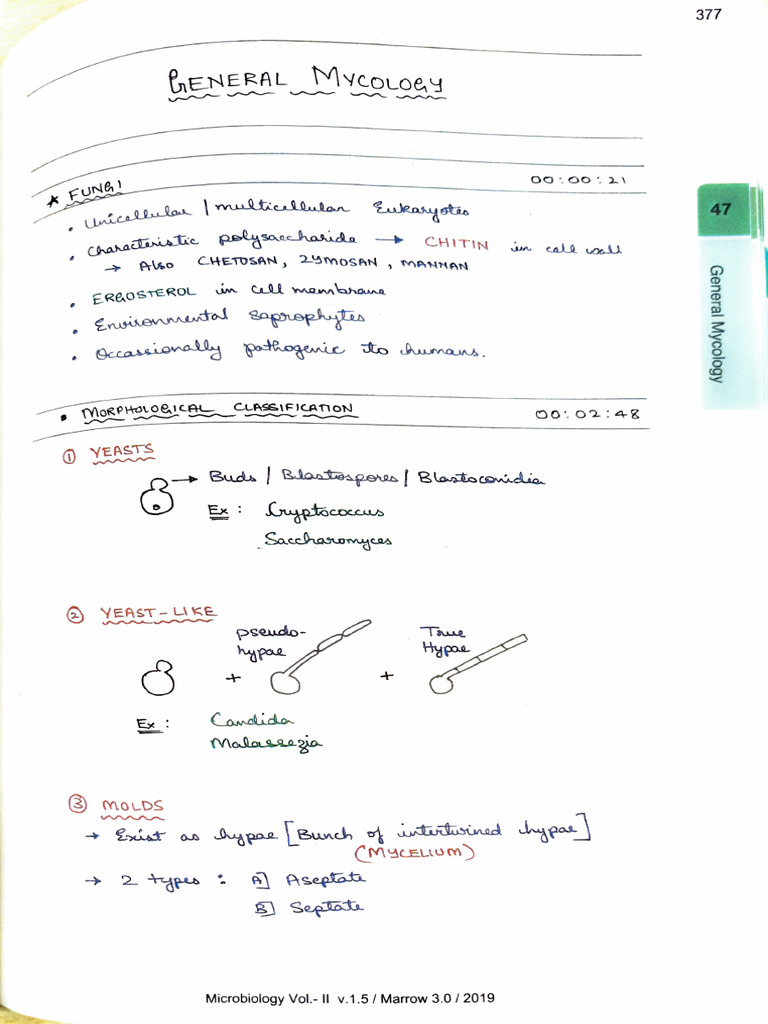 377
GENERAL MYCOLOGY
★ FUNGI 00:00:21
• Unicellular / multicellular Eukaryotes
• Characteristic polysaccharide → CHITIN in cell wall
→ Also CHETOSAN, ZYMOSAN, MANNAN
• ERGOSTEROL in cell membrane
• Environmental saprophytes
• Occassionally pathogenic to humans.
47
General Mycology
• MORPHOLOGICAL CLASSIFICATION 00:02:48
① YEASTS
→ Buds / Blastospores / Blastoconidia
Ex : Cryptococcus
Saccharomyces
② YEAST-LIKE
pseudo-
hypae
True
Hypae
+ +
Ex : Candida
Malassezia
③ MOLDS
→ Exist as hypae [Bunch of intertwined hypae]
(MYCELIUM)
→ 2 types : A] Aseptate
B] Septate
Microbiology Vol.- II v.1.5 / Marrow 3.0 / 2019